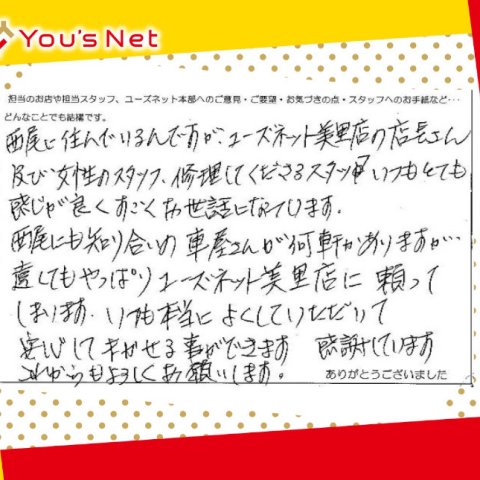 You's Net
担当のお店や担当スタッフ、ユーズネット本部へのご意見・ご要望・お気づきの点・スタッフへのお手紙など…
どんなことでも結構です。
西尾に住んでいるんですが、ユーズネット美里店の店長さん
及び女性のスタッフ、修理してくださるスタッフ いつもとても
感じが良くすごくお世話になっています。
西尾にも知り合いの車屋さんが何軒かありますが…
遠くてもやっぱりユーズネット美里店に 頼って
しまいます。いつも本当に よくしていただいて
安心して まかせる事ができます 感謝しています
これからもよろしくお願いします。
ありがとうございました